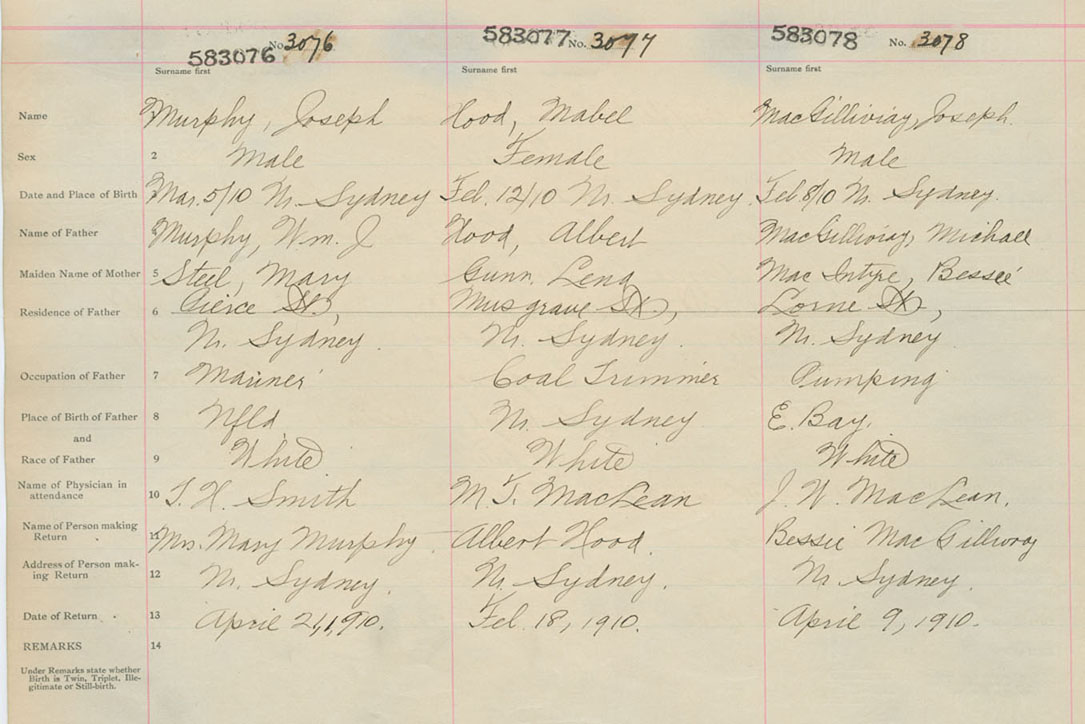 583076 No. 3076 583077 No. 3077 583078 No. 3078
Surname first Surname first Surname first
Name Murphy, Joseph Hood, Mabel MacGillivray, Joseph.
Sex 2 Male Female Male
Date and Place of Birth Mar. 5/10 N. Sydney Feb. 12/10 N. Sydney. Feb 8/10 N. Sydney.
Name of Father Murphy, Wm. J Hood, Albert MacGillivray, Michael
Maiden Name of Mother 5 Steel, Mary Gunn, Lena Mac Intyre, Bessie
Residence of Father 6 Pierce St., Musgrave St., Lorne St.,
N. Sydney. N. Sydney. N. Sydney.
Occupation of Father 7 Mariner Coal Trimmer Pumping
Place of Birth of Father 8 Nfld N. Sydney E. Bay.
and
Race of Father 9 White White White
Name of Physician in
attendance 10 T. H. Smith M. T. MacLean J. W. MacLean.
Name of Person making
Return 11 Mrs. Mary Murphy Albert Hood. Bessie MacGillivray
Address of Person mak-
ing Return 12 N. Sydney. N. Sydney. N. Sydney.
Date of Return 13 April 21, 1910. Feb. 18, 1910. April 9, 1910.
REMARKS 14
Under Remarks state whether
Birth is Twin, Triplet, Ille-
gitimate or Still-birth.